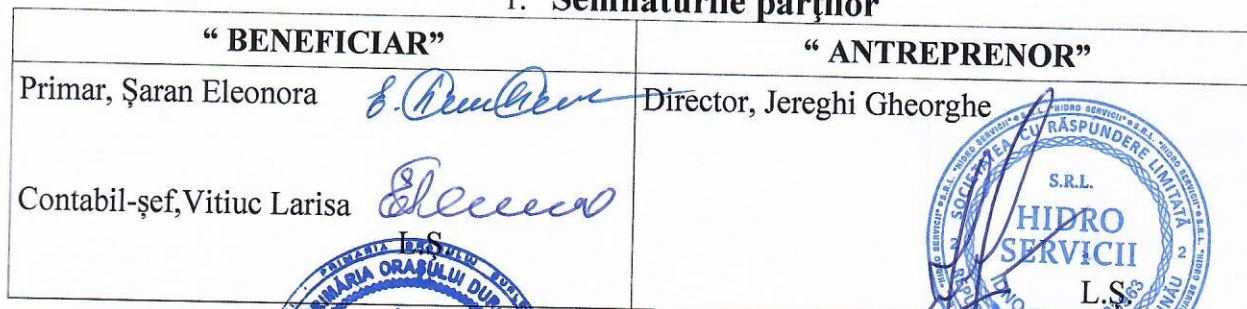 1. Semnăturile părților
“ BENEFICIAR”
“ ANTREPRENOR”
Primar, Șaran Eleonora
Director, Jereghi Gheorghe
Contabil-șef,Vitiuc Larisa
L.Ș.
PRIMĂRIA ORAȘULUI DUR
SOCIETATEA CU RĂSPUNDERE LIMITATĂ
S.R.L.
HIDRO
SERVICII
2
2
L.Ș.